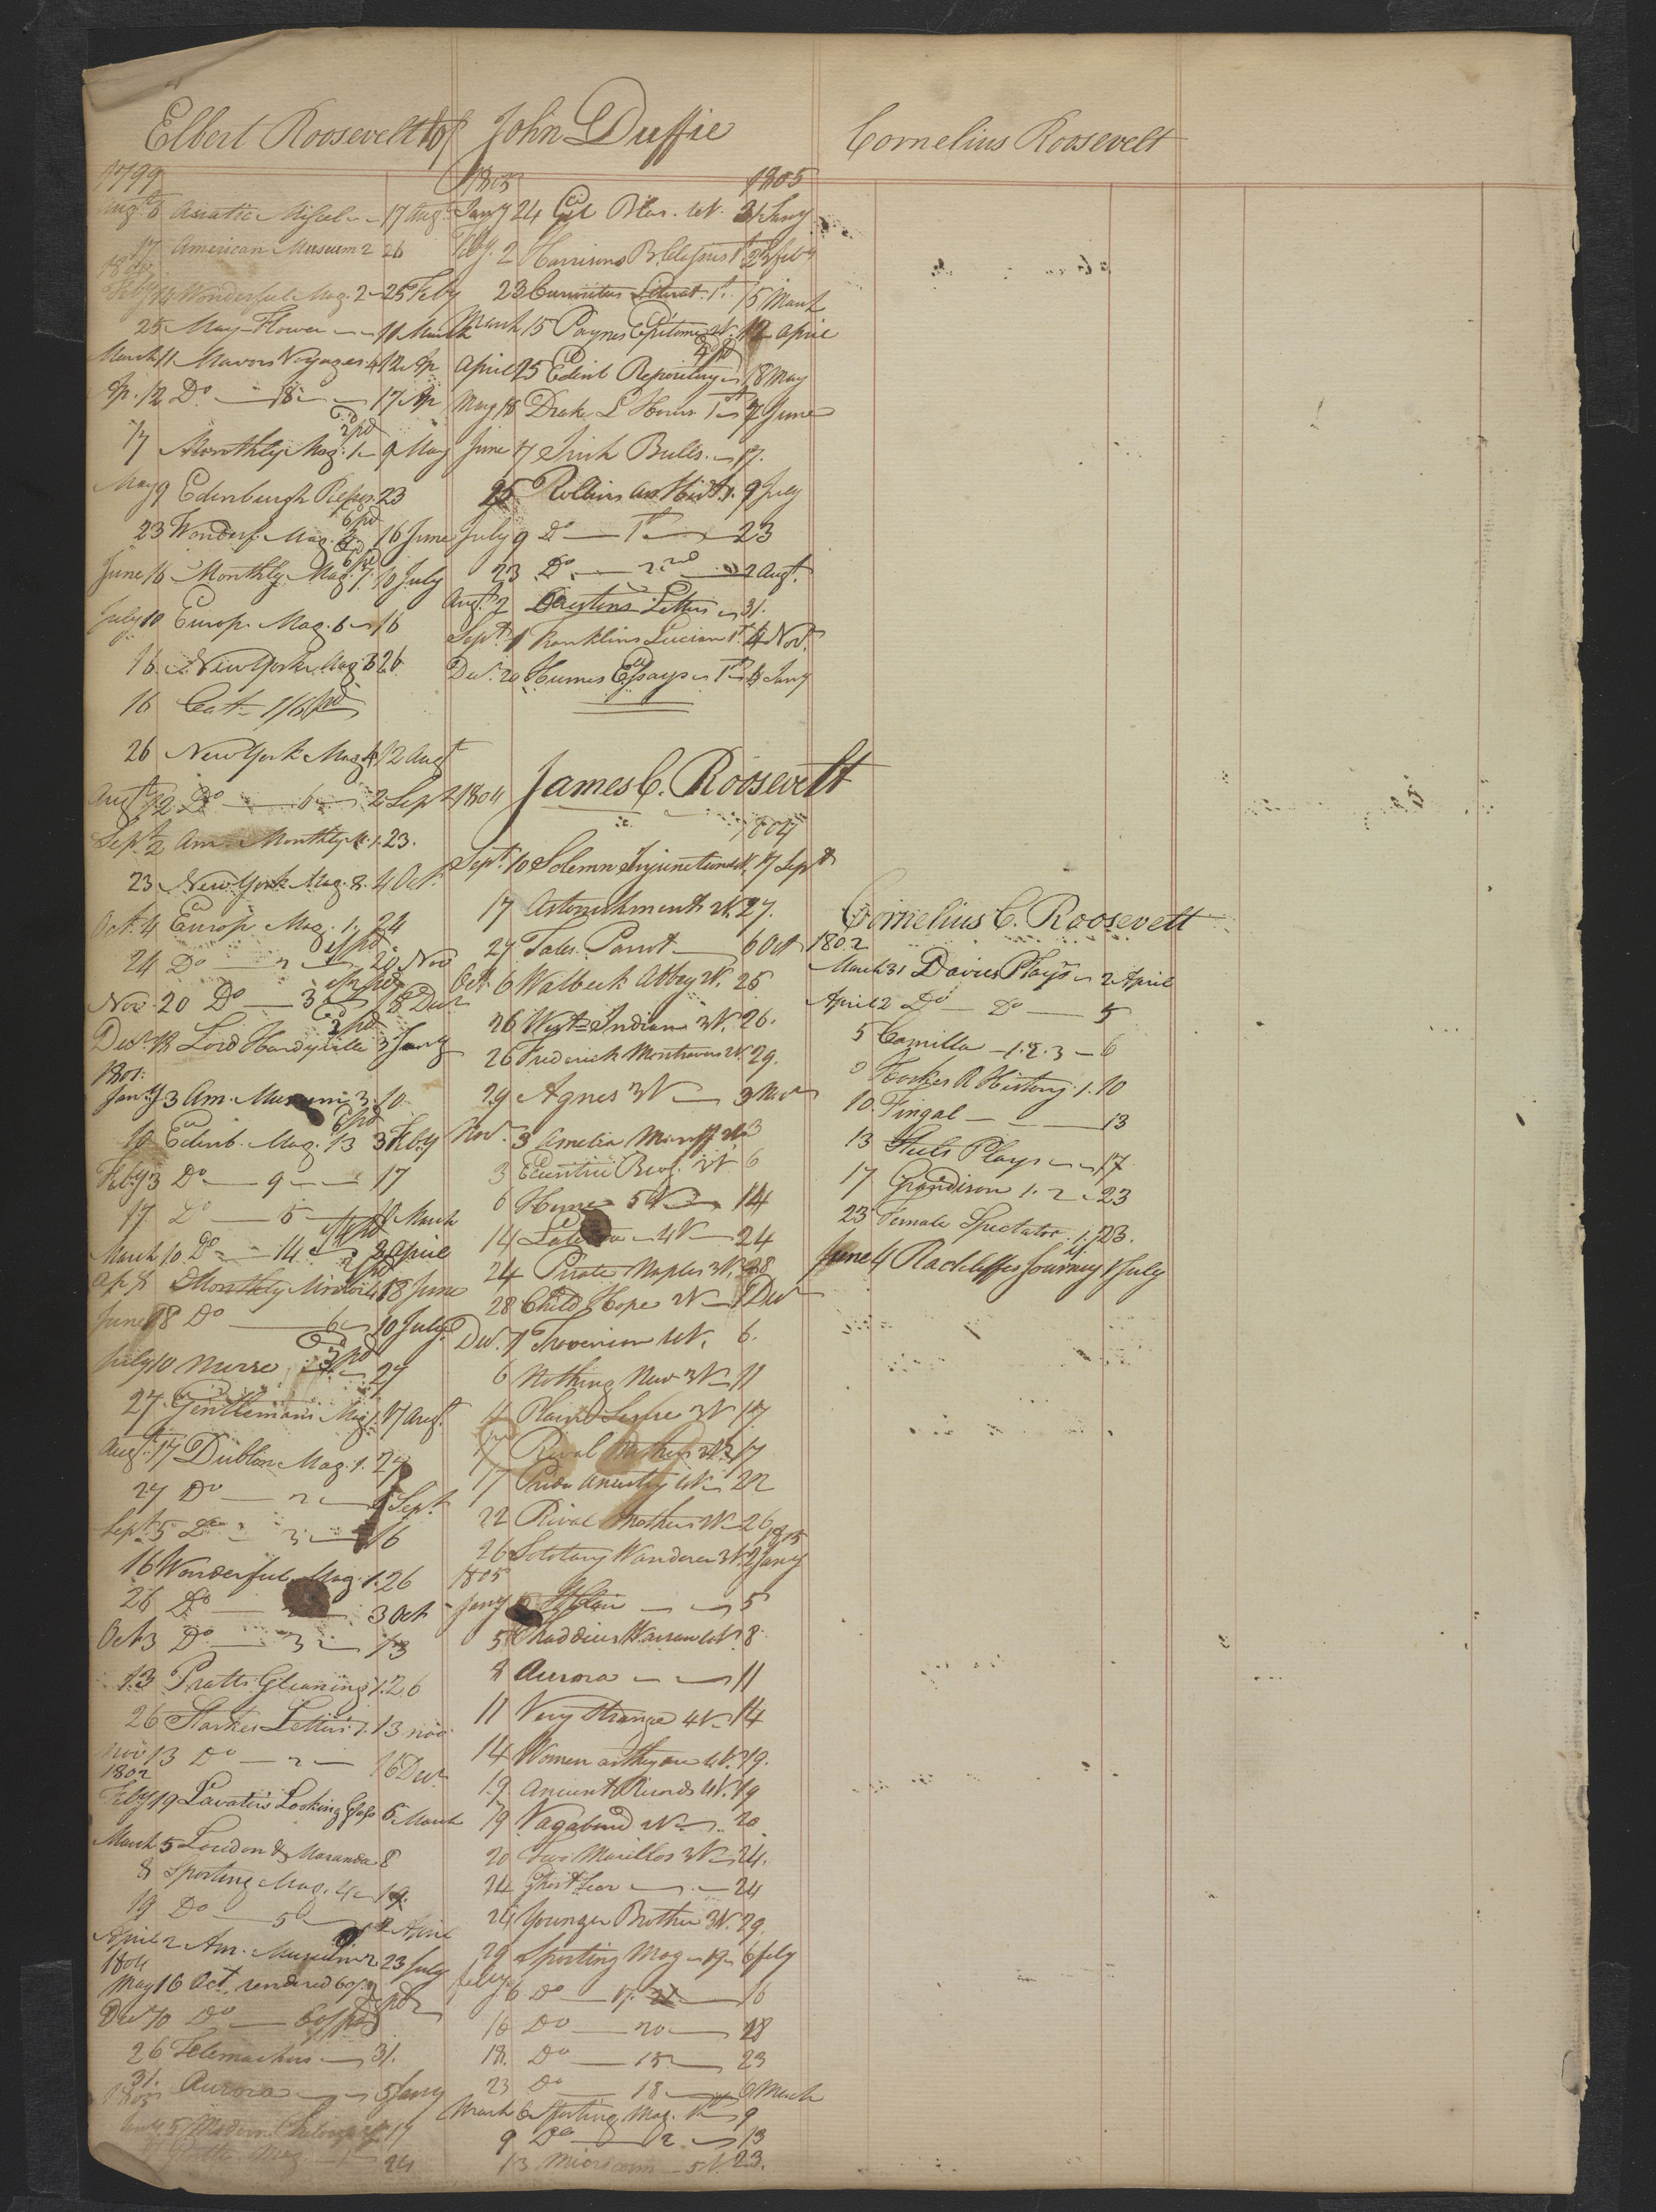 Elbert Roosevelt
1799
Augt 5 Asiatic Miscel 17 Augt
17 American Museum 2 26
Feby Wonderful Mag. 2 25 Feby
25 May Flower 11 March
March 11 Mavors Voyages 4 12 Ap
Ap. 12 Do 18 17 Ap
2/pd
17 Monthly Mag. 1 9 May
May 9 Edinburgh Repos. 23
6/pd
23 Wonderf. Mag. 16 June
June 16 Monthly Mag. 7. 10 July
July 10 Europ. Mag. 6 16
16 New York Mag. 3 26
16 Cat 1/6 pd
26 New York Mag 4 12 Augt
Augt 12 Do 6 2 Sept
Sept 2 Am. Monthly R. 1. 23.
23 New York Mag. 8. 4 Oct
Oct. 4 Europ. Mag. 1. 24
24 Do 2 20 Nov
Nov. 20 Do 3 18 Decr
2/pd
Decr 18 Lord Hardyville 3 Jany
1801.
Jany 3 Am. Museum 3. 10
6/pd
10 Edinb. Mag. 13 3 Feby
Feby 3 Do 9 17
17 Do 5 10 March
March 10 Do 14 8 April
Ap. 8 Monthly Mirror 4 18 June
June 18 Do 6 10 July
July 10 Nurse 27
27 Gentlemans Mag 1. 17 Augt
Augt 17 Dublin Mag. 1. 27
27 Do 2 5 Sept
Sept 5 Do 3 16
16 Wonderful Mag. 1. 26
26 Do 3 Oct
Oct 3 Do 3 13
13 Pratts Gleaning 1. 26
26 Starkes Letters 1. 13 Nov
Nov 13 Do 2 16 Decr
1802
Feby 19 Lavaters Looking Glass 5 March
March 5 Loudon & Maranda 8
8 Sporting Mag. 4 19
19 Do 5 2 April
April 2 Am. Museum 2 23 July
1804
May 16 Act. rendered 60/
Decr 10 Do 60/pd
26 Telemachus 31.
31. Aurora 5 Jany
1805
Jany 5 Modern 17
Mag 24
John L Duffie
1805 1805
Jany 24 Gil Blas. 4V. 31 Jany
Feby. 2 Harrisons B. Classics 1st 23 Feby
23 Curiosities Literat. 1st. 15 March
March 15 Paynes Epitome 2V. 12 April
4/pd
April 25 Edinb Repository 18 May
May 18 Drake L Hours 1st 7 June
June 7 Irish Bulls. 17.
25 Rollins An Hist. 9 July
July 9 Do 1st 23
23 Do 2nd 2 Augt.
Augt. 2 Letters 31.
Sept. 1 Franklins Lucian 1st 4 Novr.
Decr. 20 Humes Essays 1st 4 Jany
1804 James C. Roosevelt
1804
Sept. 10 Solemn Injunction 4V. 17 Sept
17 Astonishment 2V. 27.
27 Tales Parrot 6 Oct
Oct. 6 Walbeck Abbey 2V. 25
26 West Indian 3V. 26.
26 Frederick Montravers 2V. 29.
29 Agnes 3V 3 Novr
Novr. 3 Amelia 3
3 Eccentric Biog. 2V. 6
6 Hume 5V 14
14 4V 24
24 Pirate Naples 3V. 28
28 Child Hope 2V 1 Decr
Decr. 1 4V. 6.
6 Nothing New 3V 11
11 Plain Sense 3V 17
17 Rival Mothers 17
17 Pride Ancestry 4V 22
22 Rival Mothers 2V 26
1805
26 Solitary Wanderer 3V. 2 Jany
1805
Jany 5
5 Thaddeus Warsaw 4V. 8
8 Aurora 11
11 Very Strange 4V 14
14 Women as they are 4V. 19.
19 Ancient Records 4V. 19
19 Vagabond 2V 20
20 Two Marillos 3V 24.
24 Ghost Seer 24
24 Younger Brother 3V. 29
29 Sporting Mag 19 6 Feby
Feby 6 Do 17. 16
16 Do 20 28
18. Do 15 23
23 Do 18 6 March
March 6 Sporting Mag. 1st 9
9 Do 2 13
13 Microcosm 5V. 23.
Cornelius Roosevelt
Cornelius C. Roosevelt
1802
March 31 Davies Plays 2 April
April 2 Do Do 5
5 Camilla 1. 2. 3 6
Hookes R History 1. 10
10 Fingal 13
13 Steels Plays 17
17 Grandison 1. 2 23
23 Female Spectator 1. 23.
June 4 Radcliffes Journey 1 July